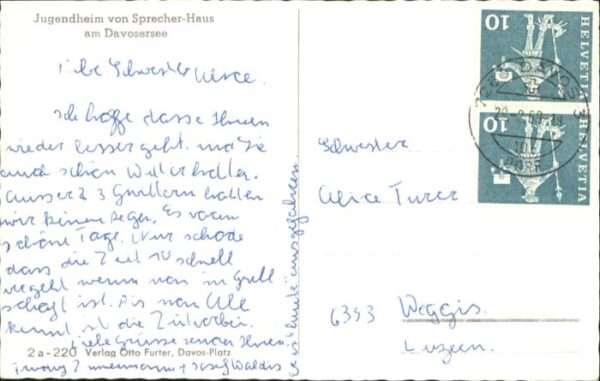 Jugendheim von Sprecher-Haus
am Davosersee
Liebe Schwester Alice.
Ich hoffe dasse Ihnen
wieder besser geht. und Sie
auch schön Wetter hatten.
Ausser 2 3 Gwittern hatten
wir keinen Regen. Es waren
schöne Tage. Nur schade
dass die Zeit so schnell
vergeht wenn man im
ist. Bis man alle
kennt ist die Zeit vorbei.
Viele Grüsse senden Ihnen
+ Josef Waldis
2a-220 Verlag Otto Furter, Davos-Platz
HELVETIA
10
HELVETIA
10
DAVOS
Schwester
Alice Turer
6353 Weggis.
Luzern.